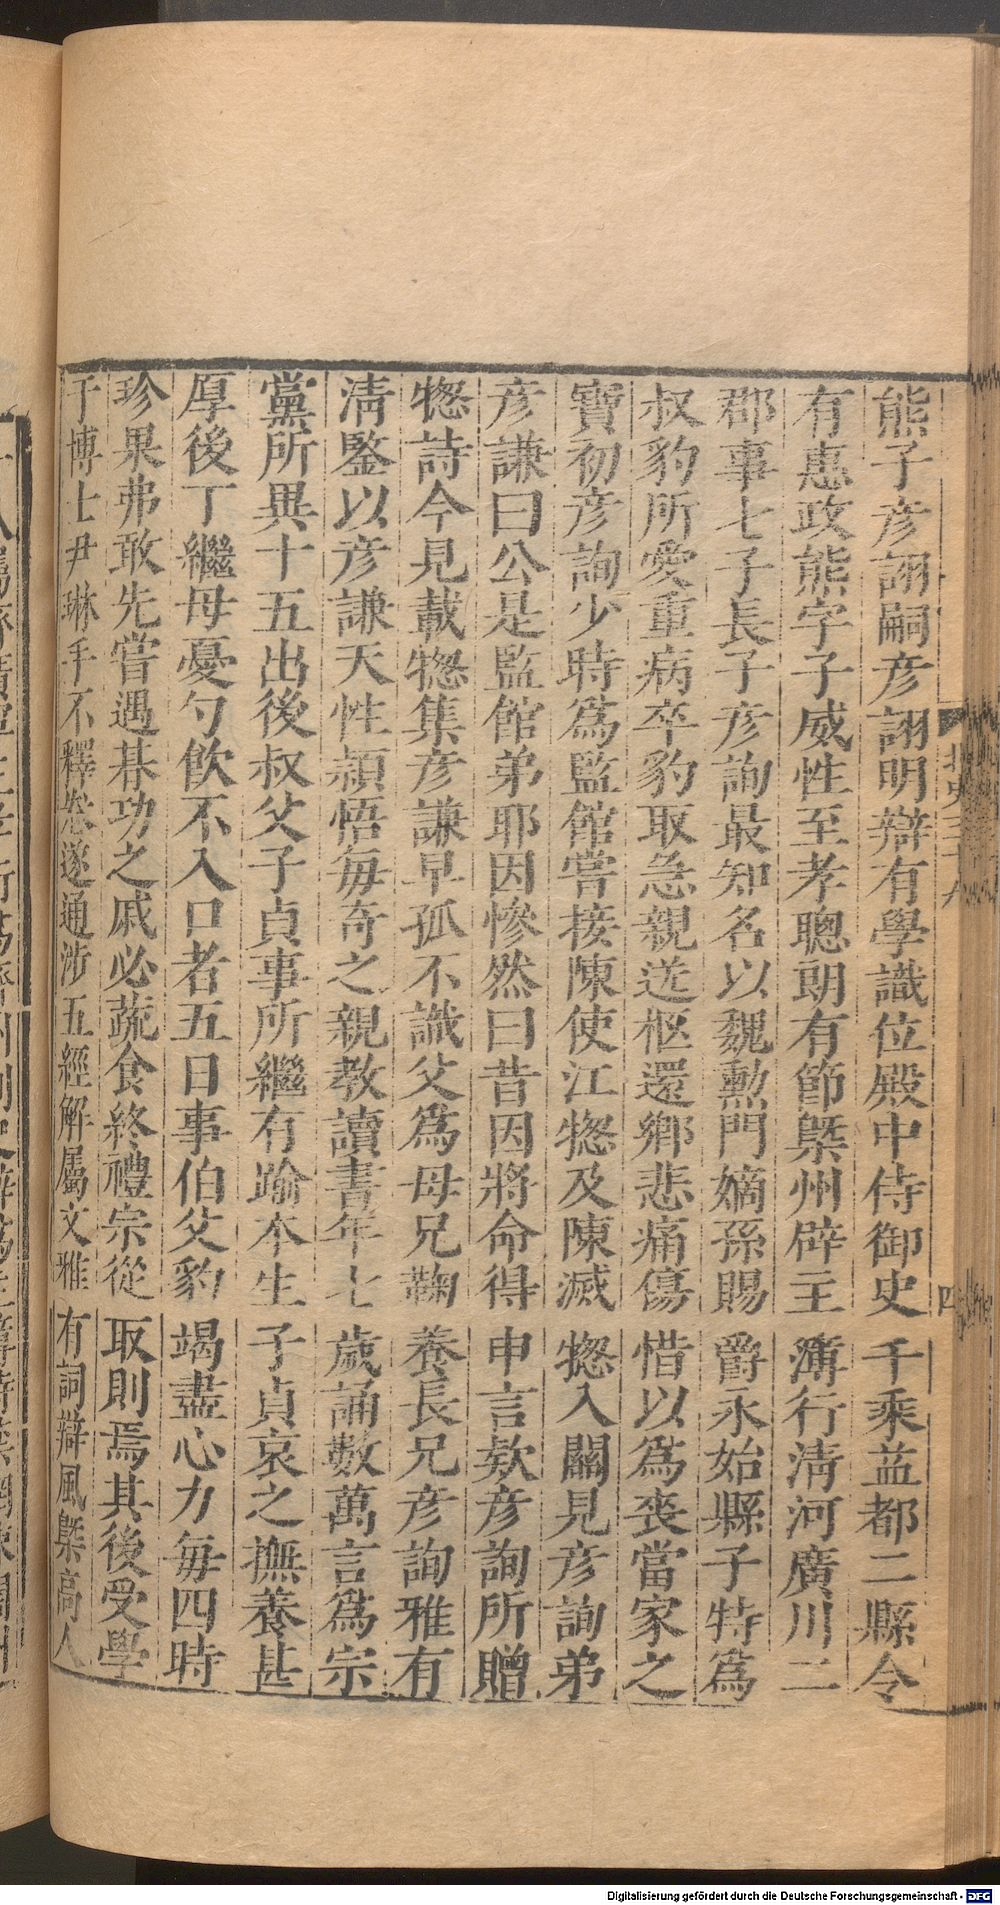 熊子彥詡嗣彥詡明辯有學識位殿中侍御史千乘益都二縣令
有惠政熊字子威性至孝聰朗有節槩州辟主簿行清河廣川二
郡事七子長子彥詢最知名以魏勲門嫡孫賜爵永始縣子特爲
叔豹所愛重病卒豹取急親送柩還鄉悲痛傷惜以爲喪當家之
寶初彥詢少時爲監館嘗接陳使江揔及陳滅揔入關見彥詢弟
彥謙曰公是監館弟耶因慘然曰昔因將命得申言欵彥詢所贈
揔詩今見載揔集彥謙早孤不識父爲母兄鞠養長兄彥詢雅有
清鑒以彥謙天性頴悟每奇之親教讀書年七歲誦數萬言爲宗
黨所異十五出後叔父子貞事所繼有踰本生子貞哀之撫養甚
厚後丁繼母憂勺飲不入口者五日事伯父豹竭盡心力每四時
珍果弗敢先嘗遇朞功之戚必蔬食終禮宗從取則焉其後受學
于博士尹琳手不釋卷遂通涉五經解屬文雅有詞辯風槩高人
北史三十九
四
Digitalisierung gefördert durch die Deutsche Forschungsgemeinschaft - DFG